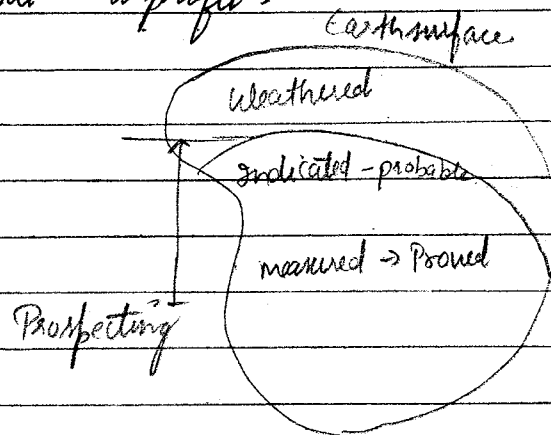 Earth surface
Weathered
Indicated - probable
measured → Proved
Prospecting